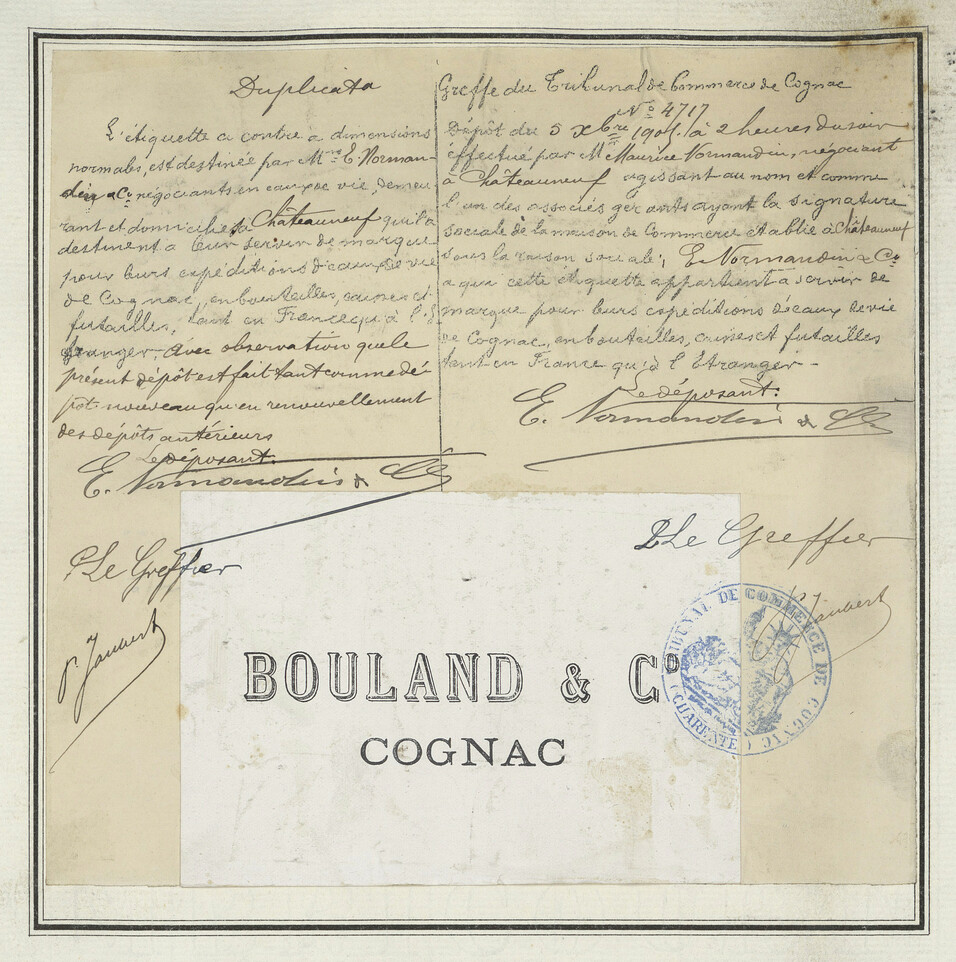 Duplicata
L'étiquette ci contre a dimensions
normales, est destinée par Mme E. Norman-
din & Co négociants en eaux de vie, demeu
rant et domiciliés à Châteauneuf qu'ils
destinent à leur servir de marque
pour leurs expéditions d'eaux de vie
de Cognac, en bouteilles, caisses et
futailles, tant en France qu'à l'É
tranger - avec observation que le
présent dépôt est fait tant comme dé-
pôt nouveau qu'en renouvellement
des dépôts antérieurs
Le déposant:
E. Normandin & Cie
P. Le Greffier
P. Jaubert
Greffe du Tribunal de Commerce de Cognac
No 4717
Dépôt du 5 xbre 1904. à 2 heures du soir
effectué par M Maurice Normandin, négociant
à Châteauneuf agissant au nom et comme
l'un des associés gérants ayant la signature
sociale de la maison de Commerce établie à Châteauneuf
sous la raison sociale; E. Normandin & Co
a qui cette étiquette appartient a servir de
marque pour leurs expéditions d'eaux de vie
de Cognac, en bouteilles, caisses et futailles
tant en France qu'à l'Etranger -
Le déposant:
E. Normandin & Cie
P Le Greffier
P. Jaubert
TRIBUNAL DE COMMERCE DE COGNAC
(CHARENTE)
BOULAND & Co
COGNAC